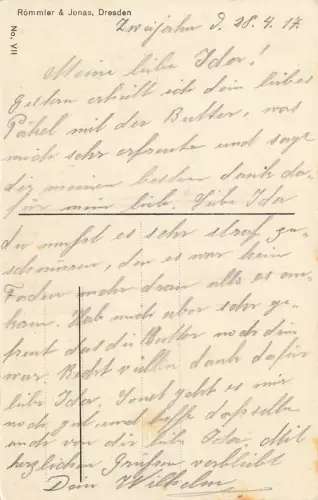 Römmler & Jonas, Dresden
No. VII
d. 28. 4. 17.
Meine liebe Ida!
Gestern erhielt ich dein liebes
Päkel mit der Butter, was
mich sehr erfreute und sagt
dir meinen besten dank da-
für mein lieb. Liebe Ida
du mußt es sehr straf zu-
schnüren, den es war kein
Faden mehr dran alls es an-
kam. Hab mich aber sehr ge-
freut das die Butter noch drin
war. Recht vielen dank dafür
liebe Ida. Sonst geht es mir
noch gut und hoffe dasselbe
auch von dir liebe Ida. Mit
herzlichen Grüßen verbleibt
Dein Wilhelm